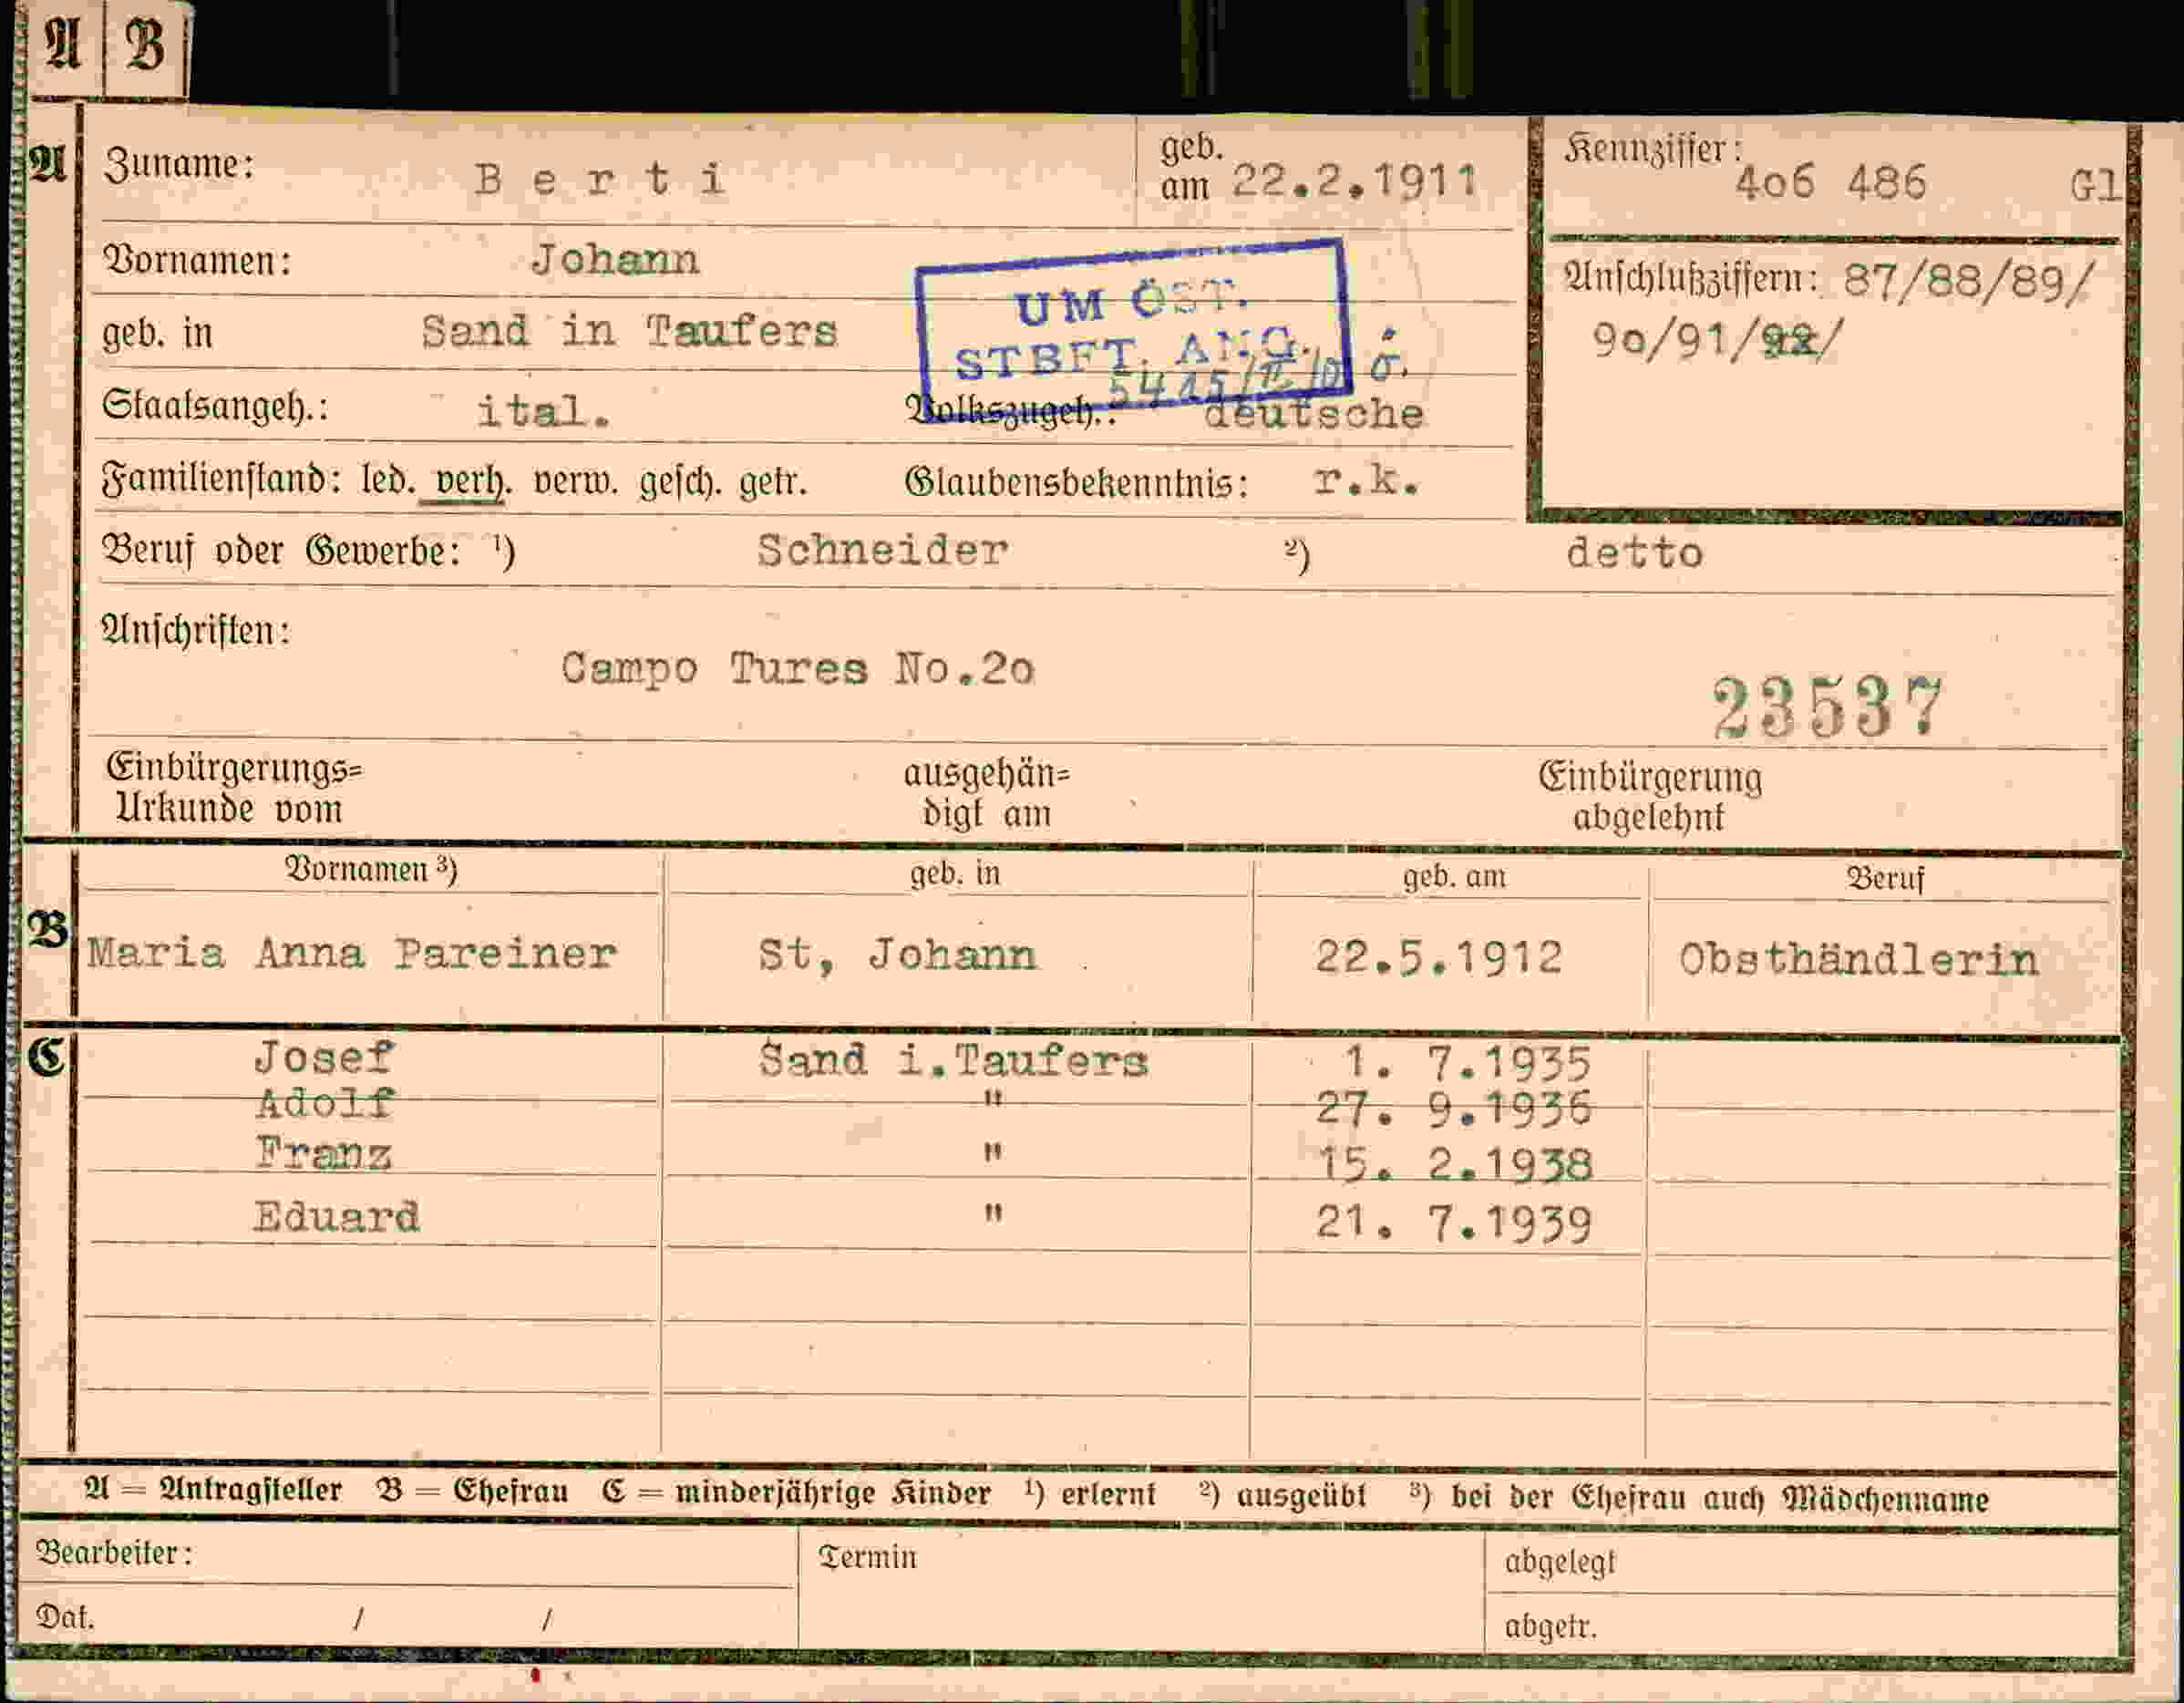 A B
A Zuname: Berti geb. am 22.2.1911 Kennziffer: 4o6 486 Gl
Vornamen: Johann
UM ÖST. STBFT. ANG.
Anschlußziffern: 87/88/89/
9o/91/
geb. in Sand in Taufers
Staatsangeh.: ital. Volkszugeh.: deutsche
Familienstand: led. verh. verw. gesch. getr. Glaubensbekenntnis: r.k.
Beruf oder Gewerbe: ¹) Schneider ²) detto
Anschriften:
Campo Tures No.2o
23537
Einbürgerungs= Urkunde vom ausgehän= digt am Einbürgerung abgelehnt
Vornamen ³) geb. in geb. am Beruf
B Maria Anna Pareiner St, Johann 22.5.1912 Obsthändlerin
C Josef Sand i.Taufers 1. 7.1935
Adolf " 27. 9.1936
Franz " 15. 2.1938
Eduard " 21. 7.1939
A = Antragsteller B = Ehefrau C = minderjährige Kinder ¹) erlernt ²) ausgeübt ³) bei der Ehefrau auch Mädchenname
Bearbeiter: Termin abgelegt
Dat. / / abgetr.